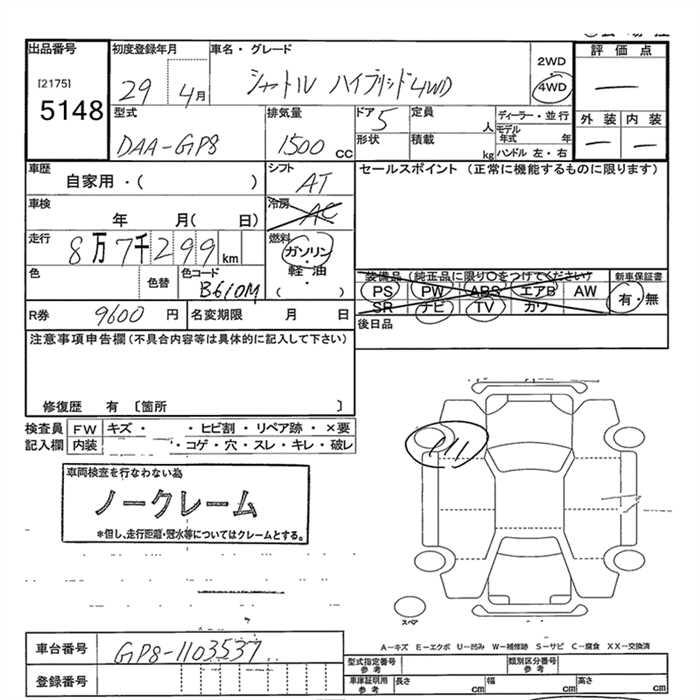 出品番号 初度登録年月 車名・グレード 評価点
[2175] 29 4月 シャトル ハイブリッド4WD 2WD
5148 4WD —
型式 排気量 ドア 定員 ディーラー・並行 外装 内装
DAA-GP8 1500 cc 5 人 モデル年式 年 — —
形状 積載 kg ハンドル 左・右
車歴 シフト セールスポイント (正常に機能するものに限ります)
自家用・( ) AT
車検 冷房
年 月( 日) AC
走行 燃料
8万7千299km ガソリン
色 色替 色コード 軽・油 装備品 (純正品に限り○をつけてください) 新車保証書
B610M ( ・ ) PS PW ABS エアB AW 有・無
SR ナビ TV カワ
R券 9600円 名変期限 月 日 後日品
注意事項申告欄(不具合内容等は具体的に記入して下さい)
修復歴 有 〔箇所 〕
検査員 FW キズ・ ・ヒビ割・リペア跡・×要
記入欄 内装 ・コゲ・穴・スレ・キレ・破レ
車両検査を行なわない為
ノークレーム
*但し、走行距離・冠水等についてはクレームとする。
スペア
A−キズ E−エクボ U−凹み W−補修跡 S−サビ C−腐食 XX−交換済
車台番号 GP8-1103537 型式指定番号 参考 類別区分番号 参考
登録番号 車庫証明用 参考 長さ cm 幅 cm 高さ cm